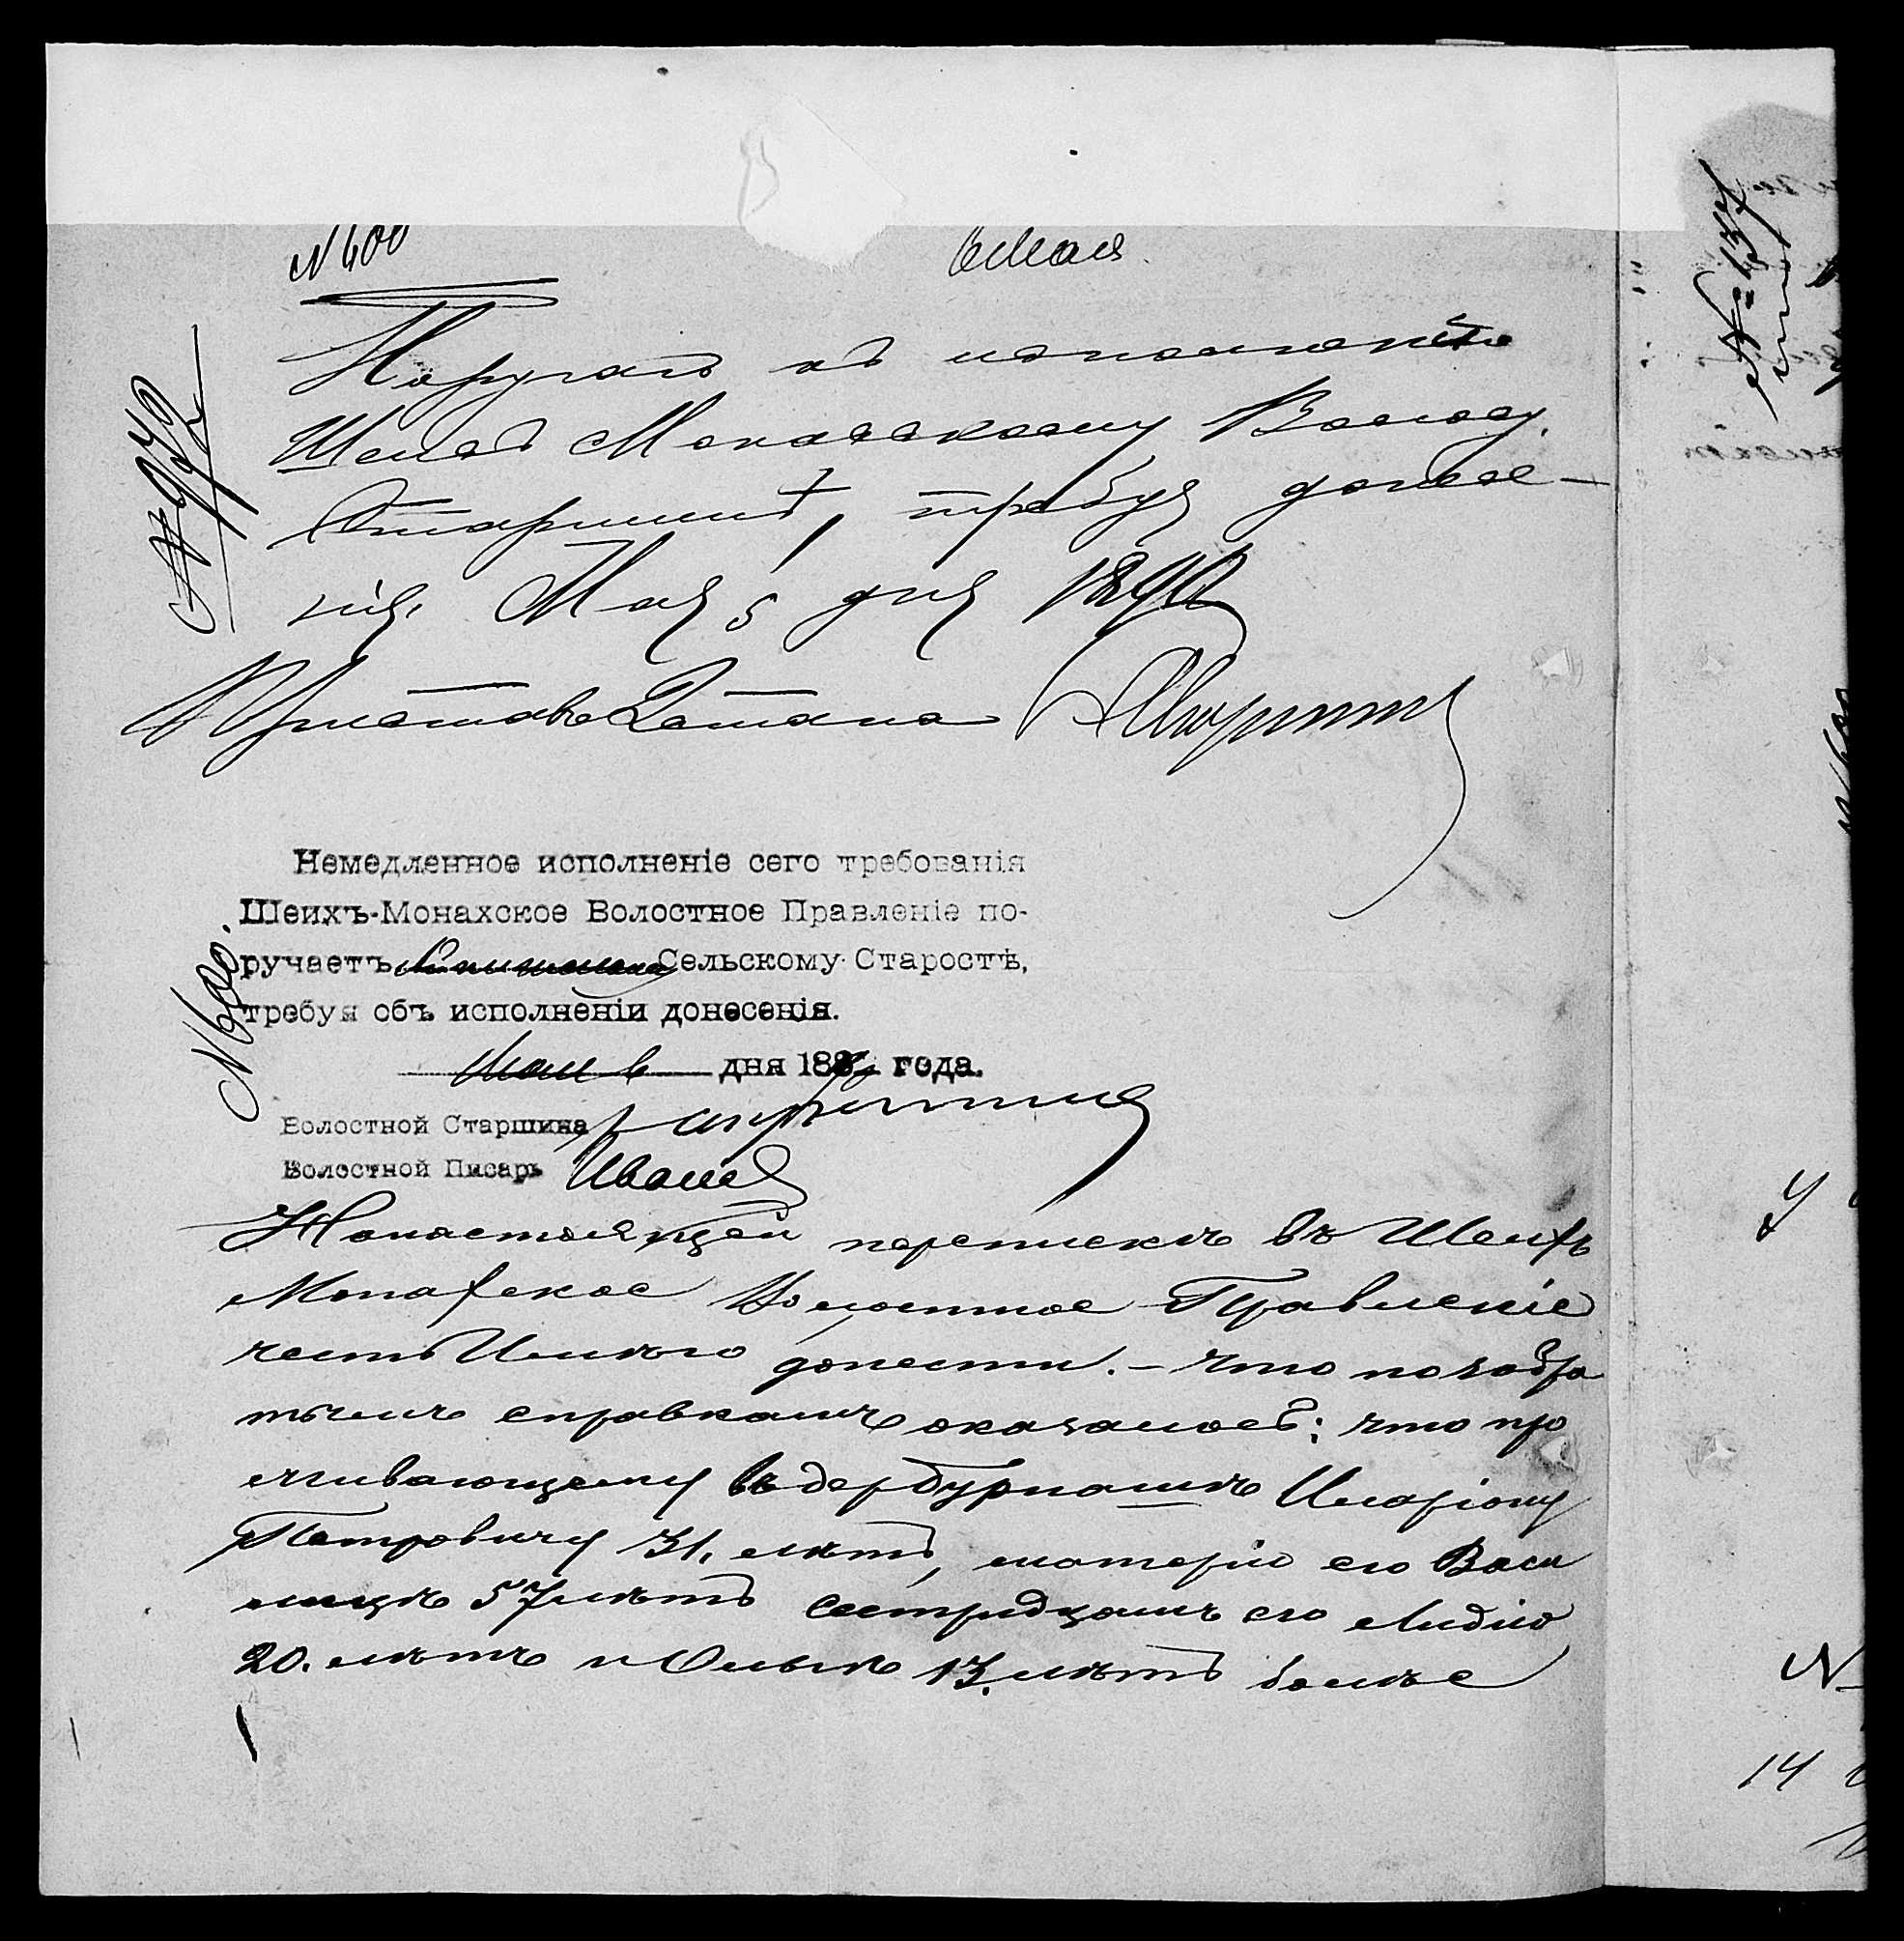 № 600
6 Мая
Поручаю къ исполненію
Шеихъ Монахскому Волост.
Старшинѣ, требуя донесе-
нія. Мая 5 дня 1890
Приставъ 2 стана
Немедленное исполненіе сего требованія
Шеихъ-Монахское Волостное Правленіе по-
ручаетъ Сельскому Старостѣ,
требуя объ исполненіи донесенія.
№ 600.
Мая 6 дня 189 года.
Волостной Старшина
Волостной Писарь Иванов
На настоящей перепискѣ въ Шеихъ
Монахское Волостное Правленіе
честь имѣю донести. – что по собра
нымъ справкамъ оказалось: что про
живающему въ Иларіону
Петровичу 31. лѣтъ, матери его Васи
лицѣ 57 лѣтъ сестрицамъ его Лидіи
20. лѣтъ и Ольгѣ 13. лѣтъ болѣе
14